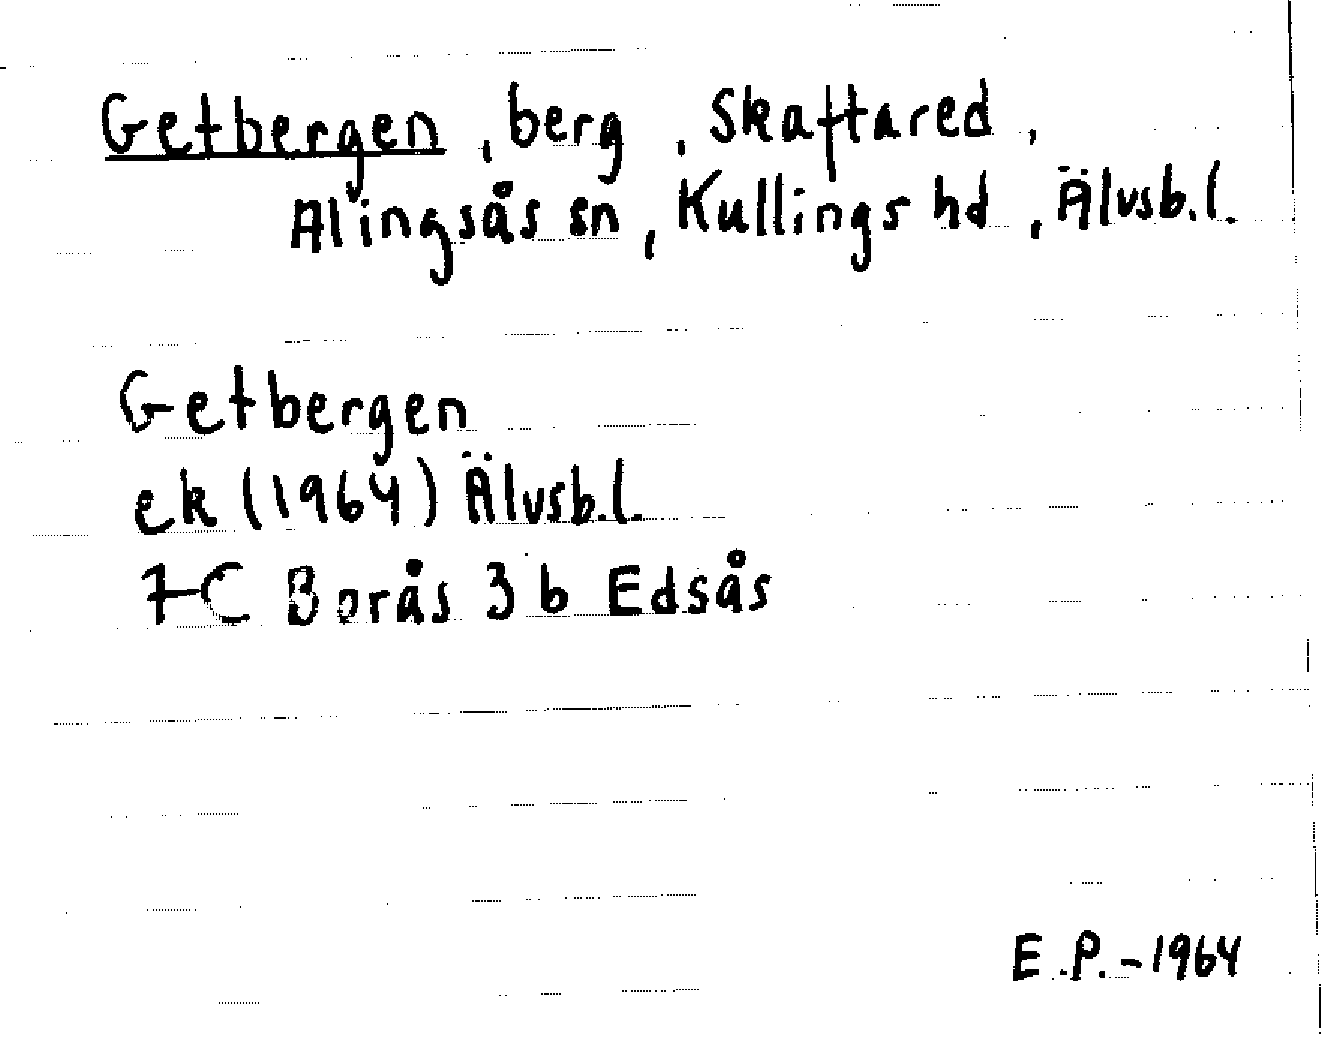 Getbergen, berg, Skaftared,
Alingsås sn, Kullings hd, Älvsb.l.
Getbergen
ek (1964) Älvsb.l.
7C Borås 3b Edsås
E.P.-1964